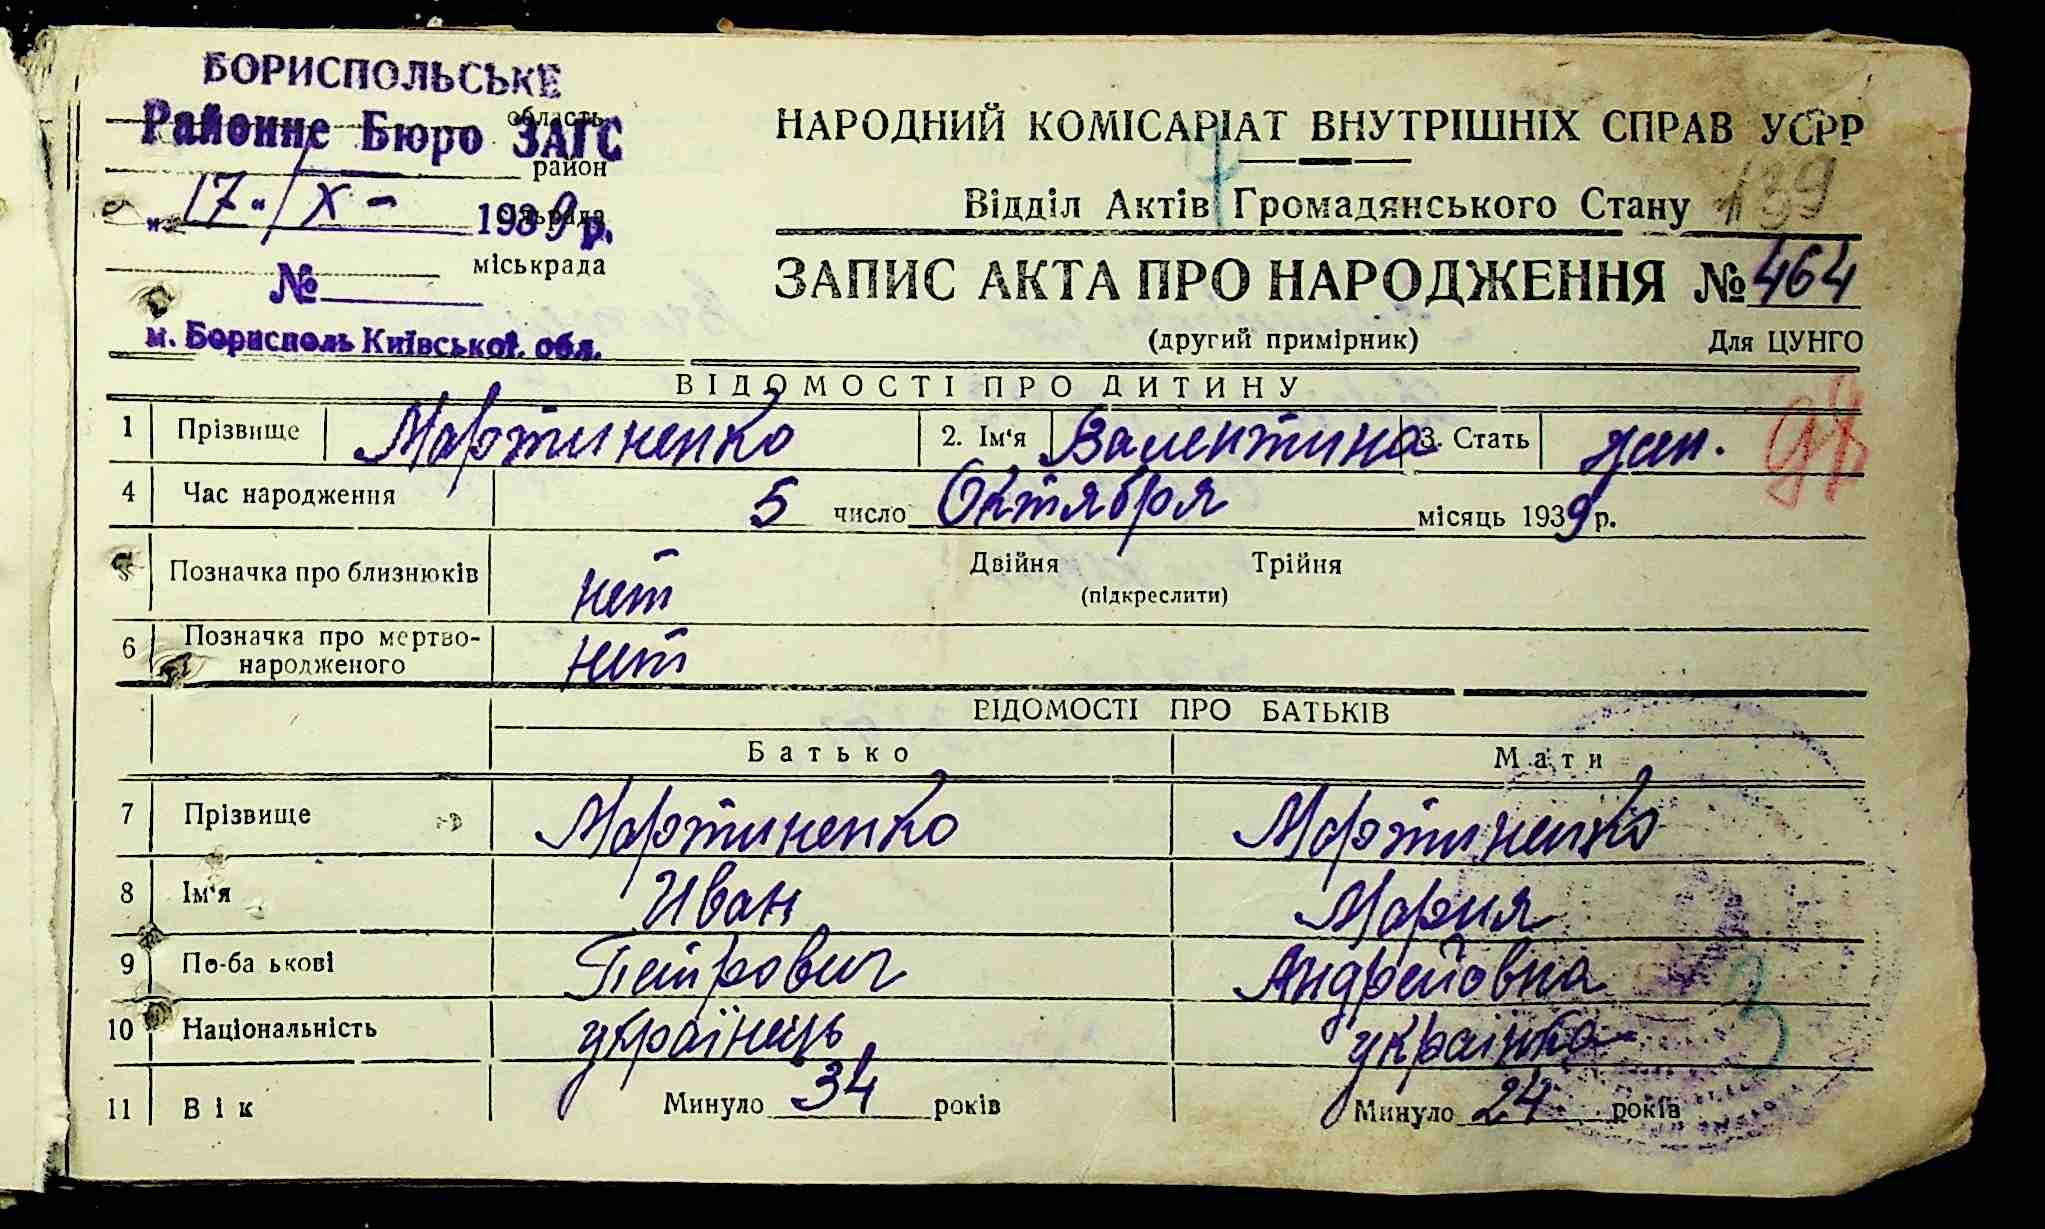 БОРИСПОЛЬСЬКЕ
область
Районне Бюро ЗАГС
район
"17." / X - 1939 р.
сільрада
міськрада
№
м. Бориспіль Київської обл.
НАРОДНИЙ КОМІСАРІАТ ВНУТРІШНІХ СПРАВ УСРР
Відділ Актів Громадянського Стану 139
ЗАПИС АКТА ПРО НАРОДЖЕННЯ № 464
(другий примірник) Для ЦУНГО
ВІДОМОСТІ ПРО ДИТИНУ
1 Прізвище Мартиненко 2. Ім'я Валентина 3. Стать жен.
4 Час народження 5 число Октября місяць 1939 р.
5 Позначка про близнюків нет Двійня Трійня
(підкреслити)
6 Позначка про мертво-
народженого нет
ВІДОМОСТІ ПРО БАТЬКІВ
Батько Мати
7 Прізвище Мартиненко Мартиненко
8 Ім'я Иван Мария
9 По-ба ькові Петрович Андреевна
10 Національність українець українка
11 Вік Минуло 34 років Минуло 24 років
3